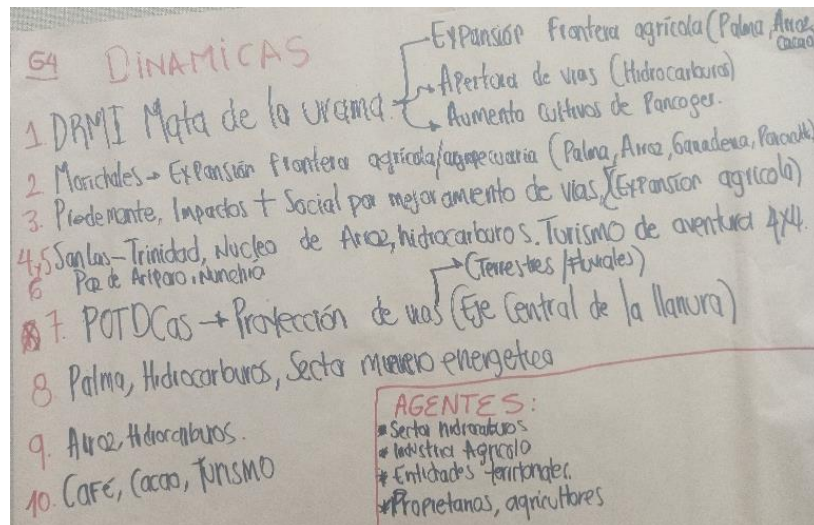 G4 DINAMICAS
1 DRMI Mata de la urama.
Expansión frontera agrícola (Palma, Arroz, cacao
Apertura de vias (Hidrocarburos)
Aumento cultivos de Pancoger.
2 Morichales → Expansión frontera agrícola/agropecuaria (Palma, Arroz, Ganadera,
3. Piedemonte, Impactos + Social por mejoramiento de vias, (Expansión agrícola)
4,5 San Luis - Trinidad, Nucleo de Arroz, hidrocarburos. Turismo de aventura 4x4.
6 Paz de Ariporo, Nunchía
(Terrestres / Fluviales)
7. POTDCas → Proyección de vias (Eje Central de la llanura)
8 Palma, Hidrocarburos, Sector minero energetico
9. Arroz, Hidrocarburos.
10. Café, Cacao, Turismo
AGENTES:
* Sector hidrocarburos
* Industria Agrícola
* Entidades territoriales.
* Propietarios, agricultores